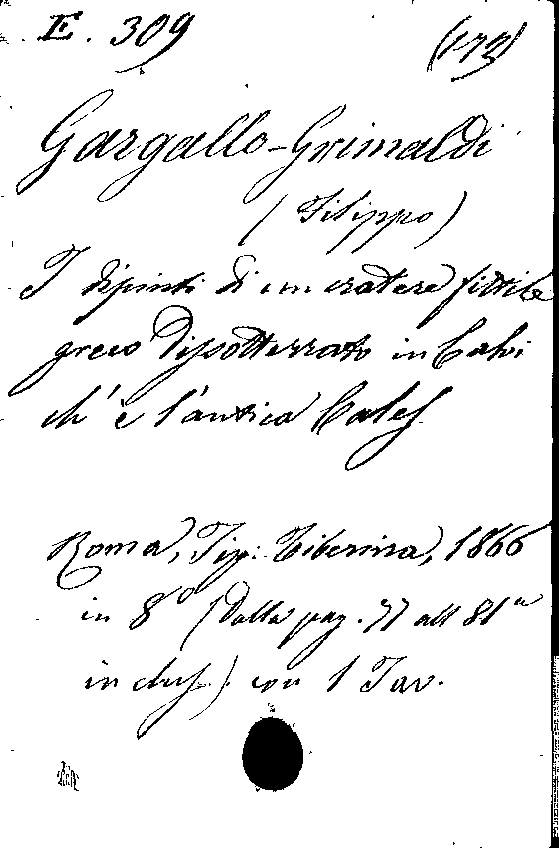 E. 309 (173)
Gargallo-Grimaldi
(Filippo)
I dipinti di un cratere fittile
greco dissotterrato in Calvi
ch'è l'antica Cales
Roma, Tip: Tiberina, 1866
in 8º (Dalla pag. 77 all 81ª
inclus.) con 1 Tav.